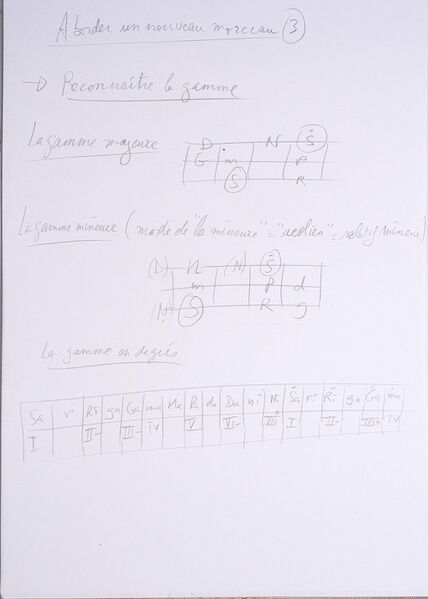 Aborder un nouveau morceau 3
→ Reconnaître la gamme
La gamme majeure
D N Ṡ
G m P
S R
La gamme mineure (mode de "la mineur" = "aeolien" = relatif mineur)
(D) n (N) Ṡ
m P d
(N) S R g
La gamme en degrés
Sa r Ri ga Ga ma Ma Pa da Da ni Ni Ṡa ri Ri ga Ga ma
I II- III- IV V VI- VII I II- III- IV